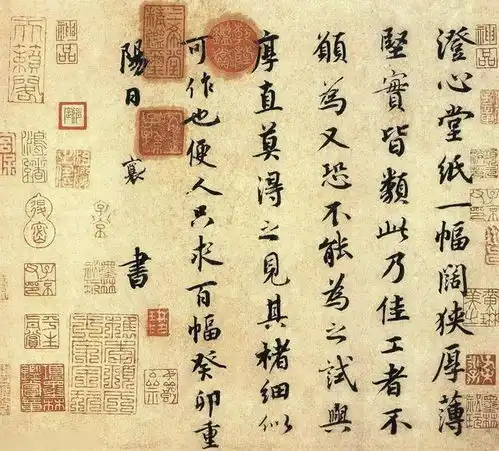 澄心堂紙一幅闊狹厚薄
堅實皆類此乃佳工者不
願為又恐不能為之試與
厚直莫得之見其楮細似
可作也便人只求百幅癸卯重
陽日 襄 書
神品
天籟閣